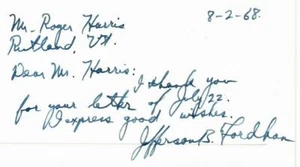 8-2-68.
Mr. Roger Harris
Rutland, Vt.
Dear Mr. Harris:
I thank you
for your letter of July 22.
I express good wishes.
Jefferson B. Fordham